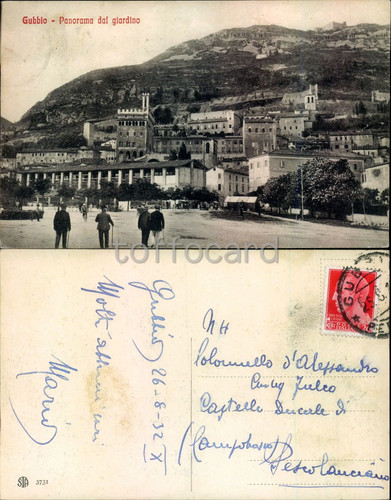 Gubbio - Panorama dal giardino
toffocard
Gubbio 26-8-32 X
Molti abbracci
Mario
GUB
NH
Colonnello d'Alessandro
Giulio
Castello Ducale di
(Campobasso) Pescolanciano
STA 3723